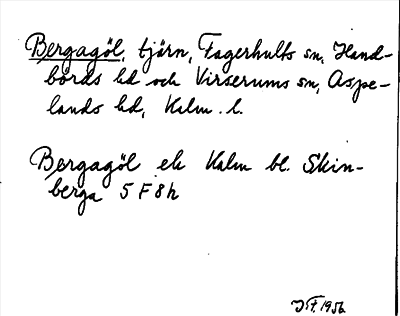 Bergagöl, tjärn, Fagerhults sn, Hand-
börds hd och Virserums sn, Aspe-
lands hd, Kalm. l.
Bergagöl ek Kalm bl. Skin-
berga 5 F 8 h
J.F. 1956